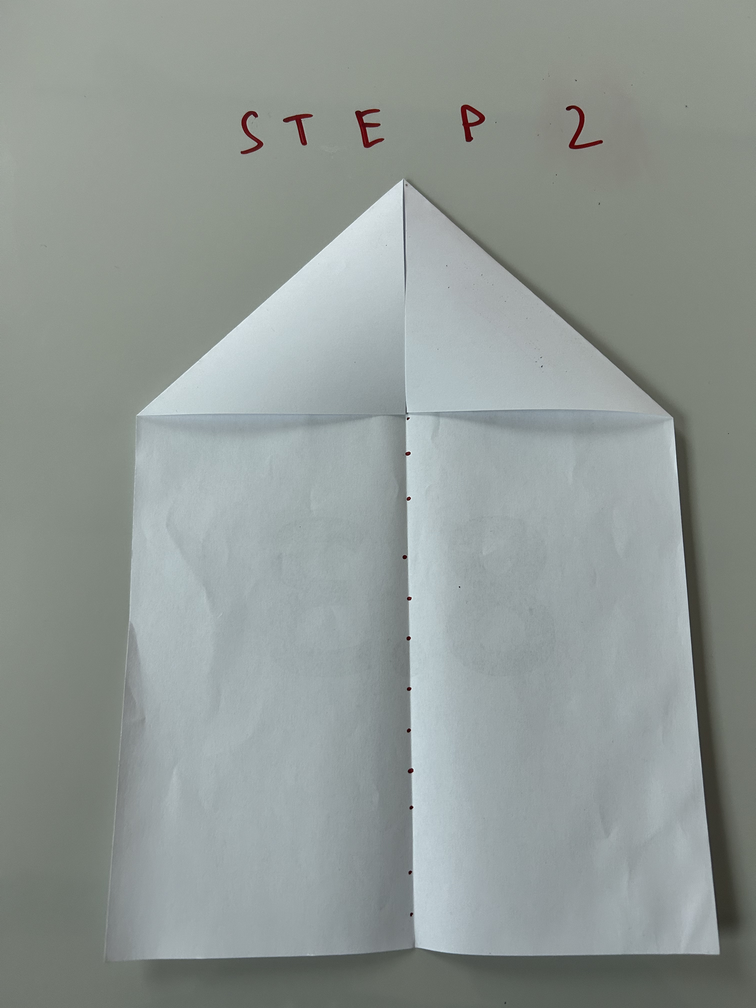 STEP 2